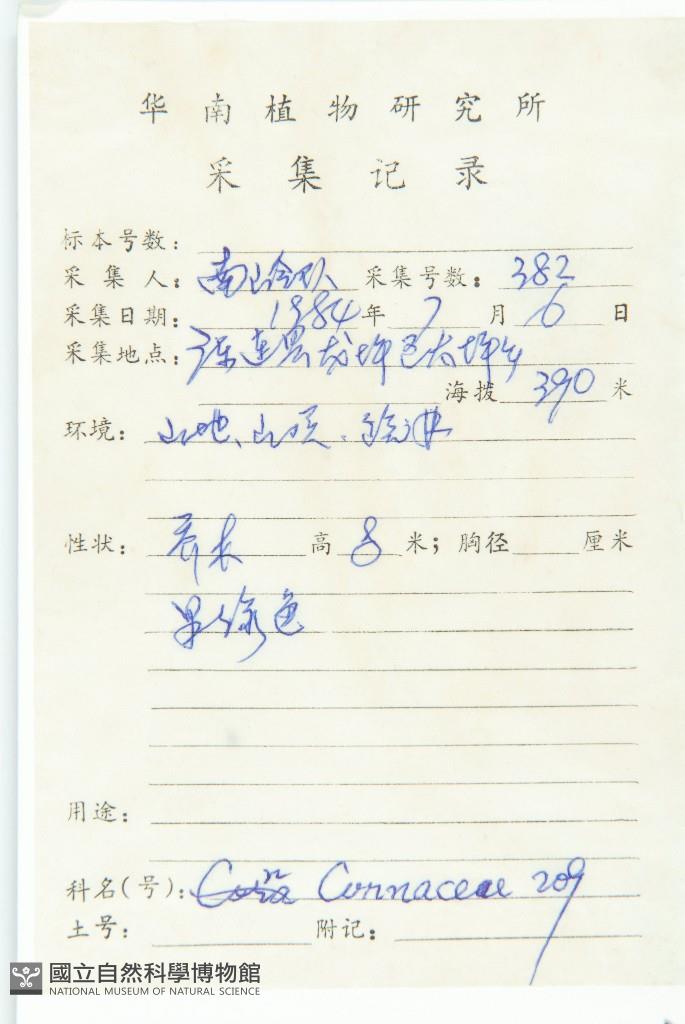 华南植物研究所
采集记录
标本号数:
采集人: 南岭队 采集号数: 382
采集日期: 1984年7月6日
采集地点: 连县龙坪区大坪乡
海拨 390 米
环境: 山地、山顶、
性状: 乔木 高 8 米; 胸径 厘米
果绿色
用途:
科名(号): Cornaceae 209
土号: 附记:
國立自然科學博物館
NATIONAL MUSEUM OF NATURAL SCIENCE